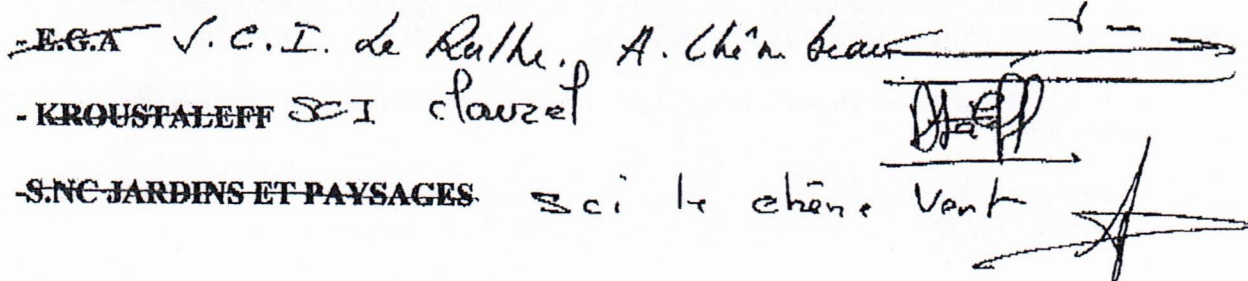 - E.G.A S.C.I. Le A.
- KROUSTALEFF SCI clauzel
-S.NC JARDINS ET PAYSAGES sci le chêne Vert